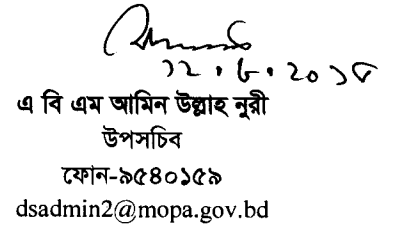 এ বি এম আমিন উল্লাহ নুরী
উপসচিব
ফোন-৯৫৪০১৫৯
dsadmin2@mopa.gov.bd